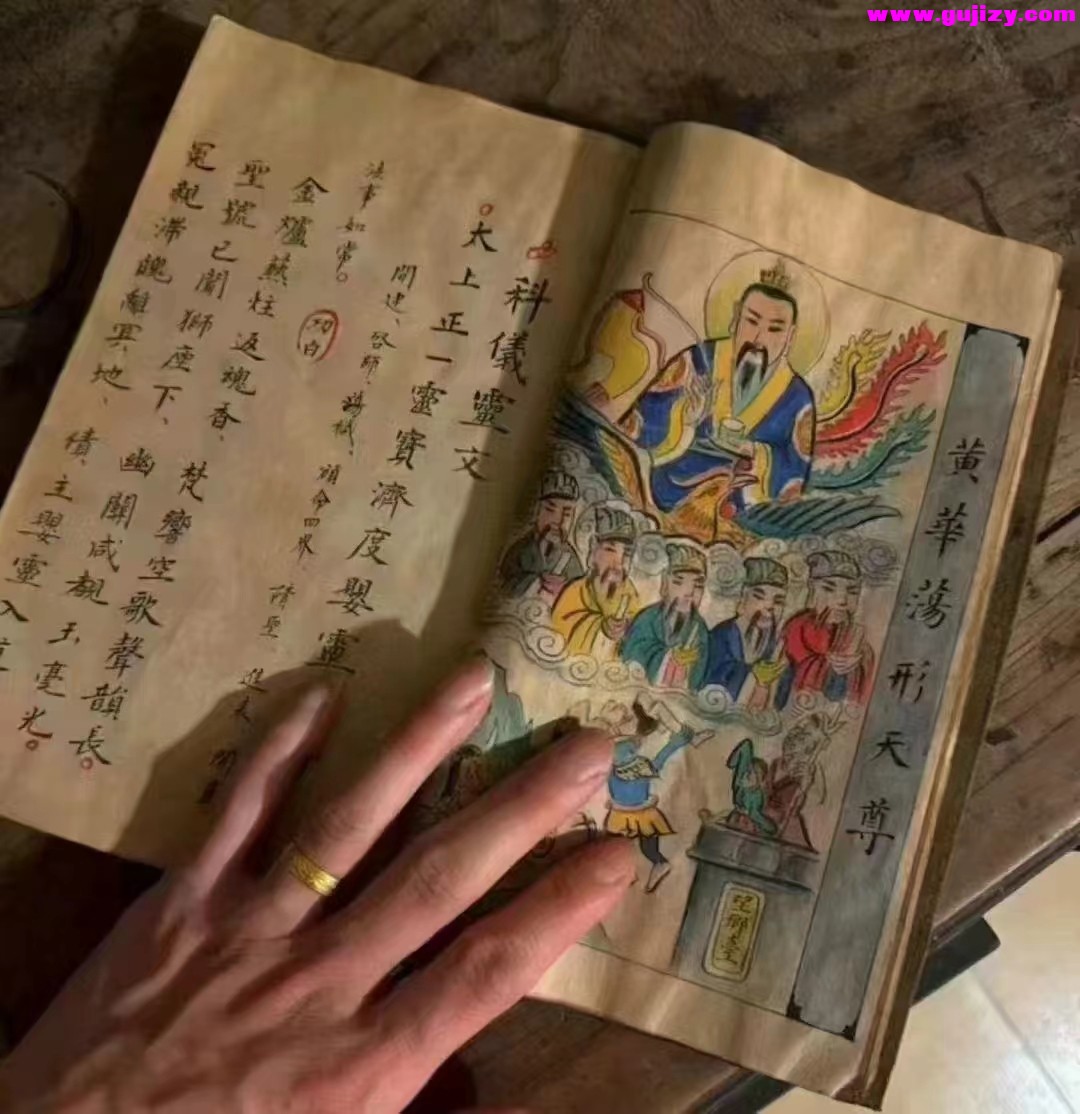 www.gujizy.com
黃華蕩形天尊
望鄉臺
科儀靈文
太上正一靈寶濟度嬰靈
開建、啟師、蕩穢、頒命四界、請聖、進表、
法事如常。
功白
金爐爇炷返魂香、梵響空歌聲韻長。
聖號已聞獅座下、幽關咸覩玉毫光。
冤親滯魄離冥地、債主嬰靈入